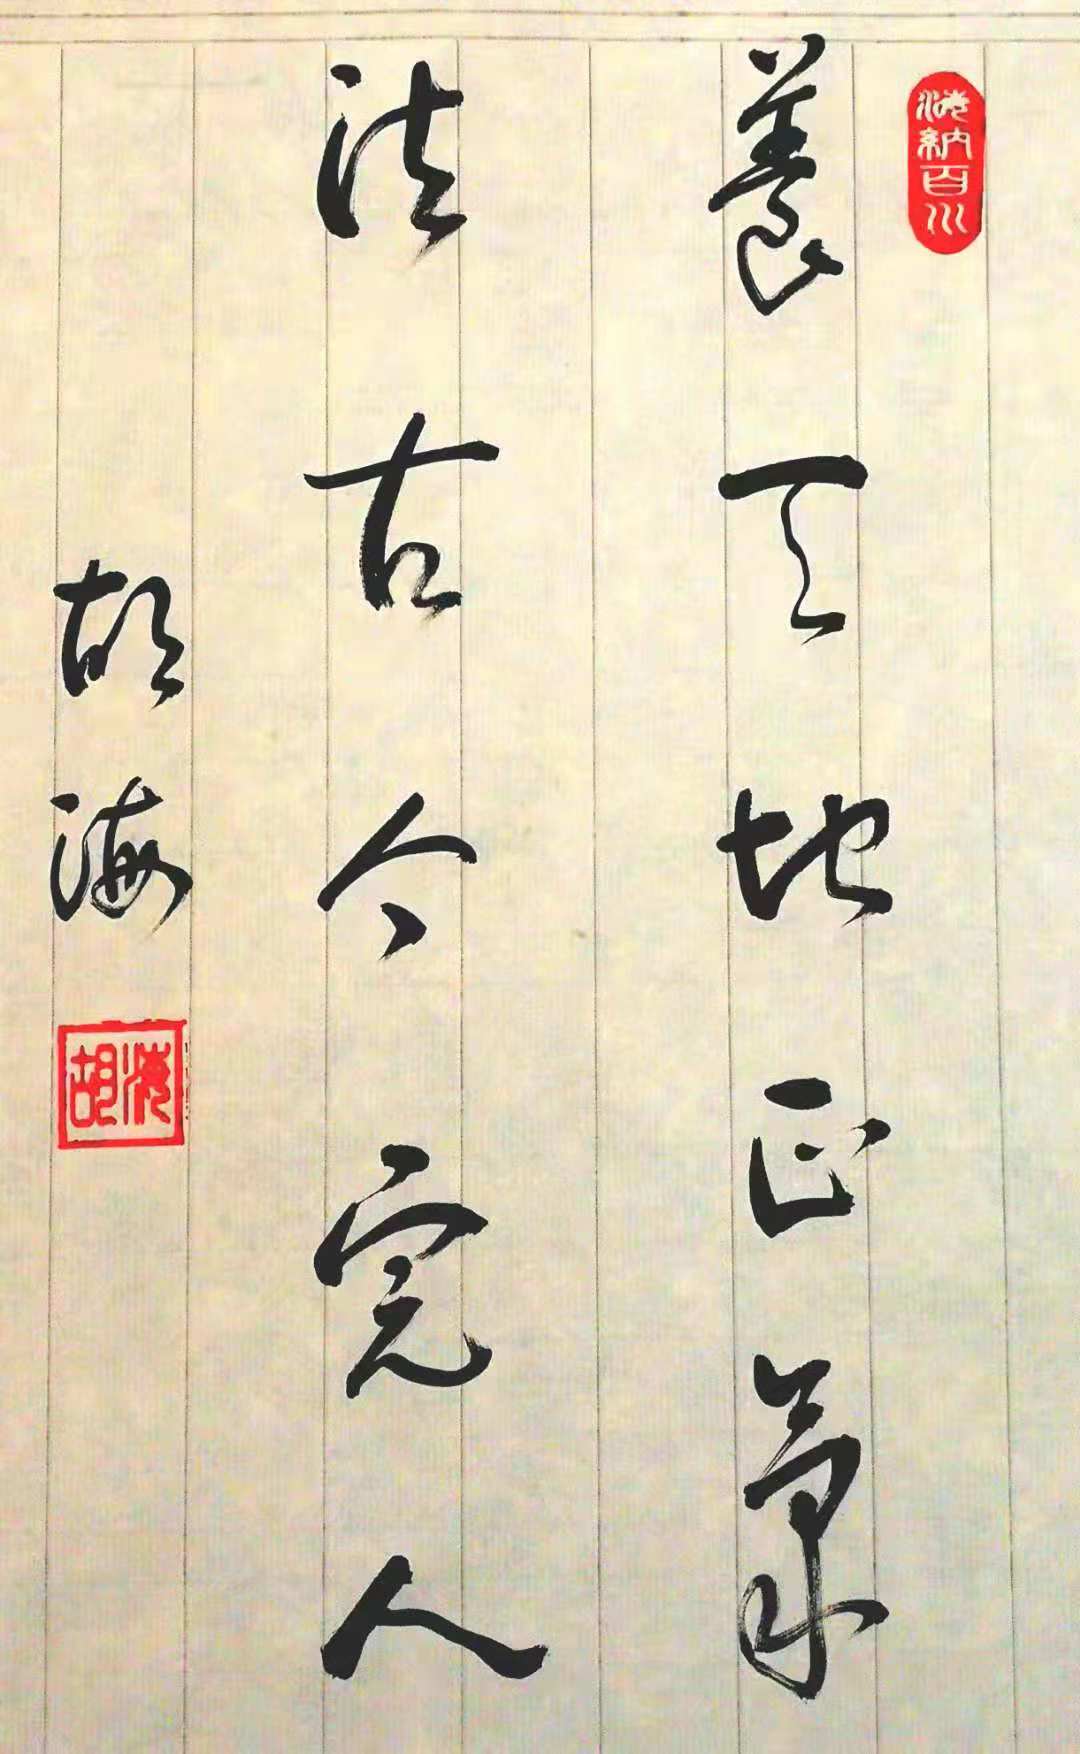 海纳百川
養天地正氣
法古今完人
胡海
胡海